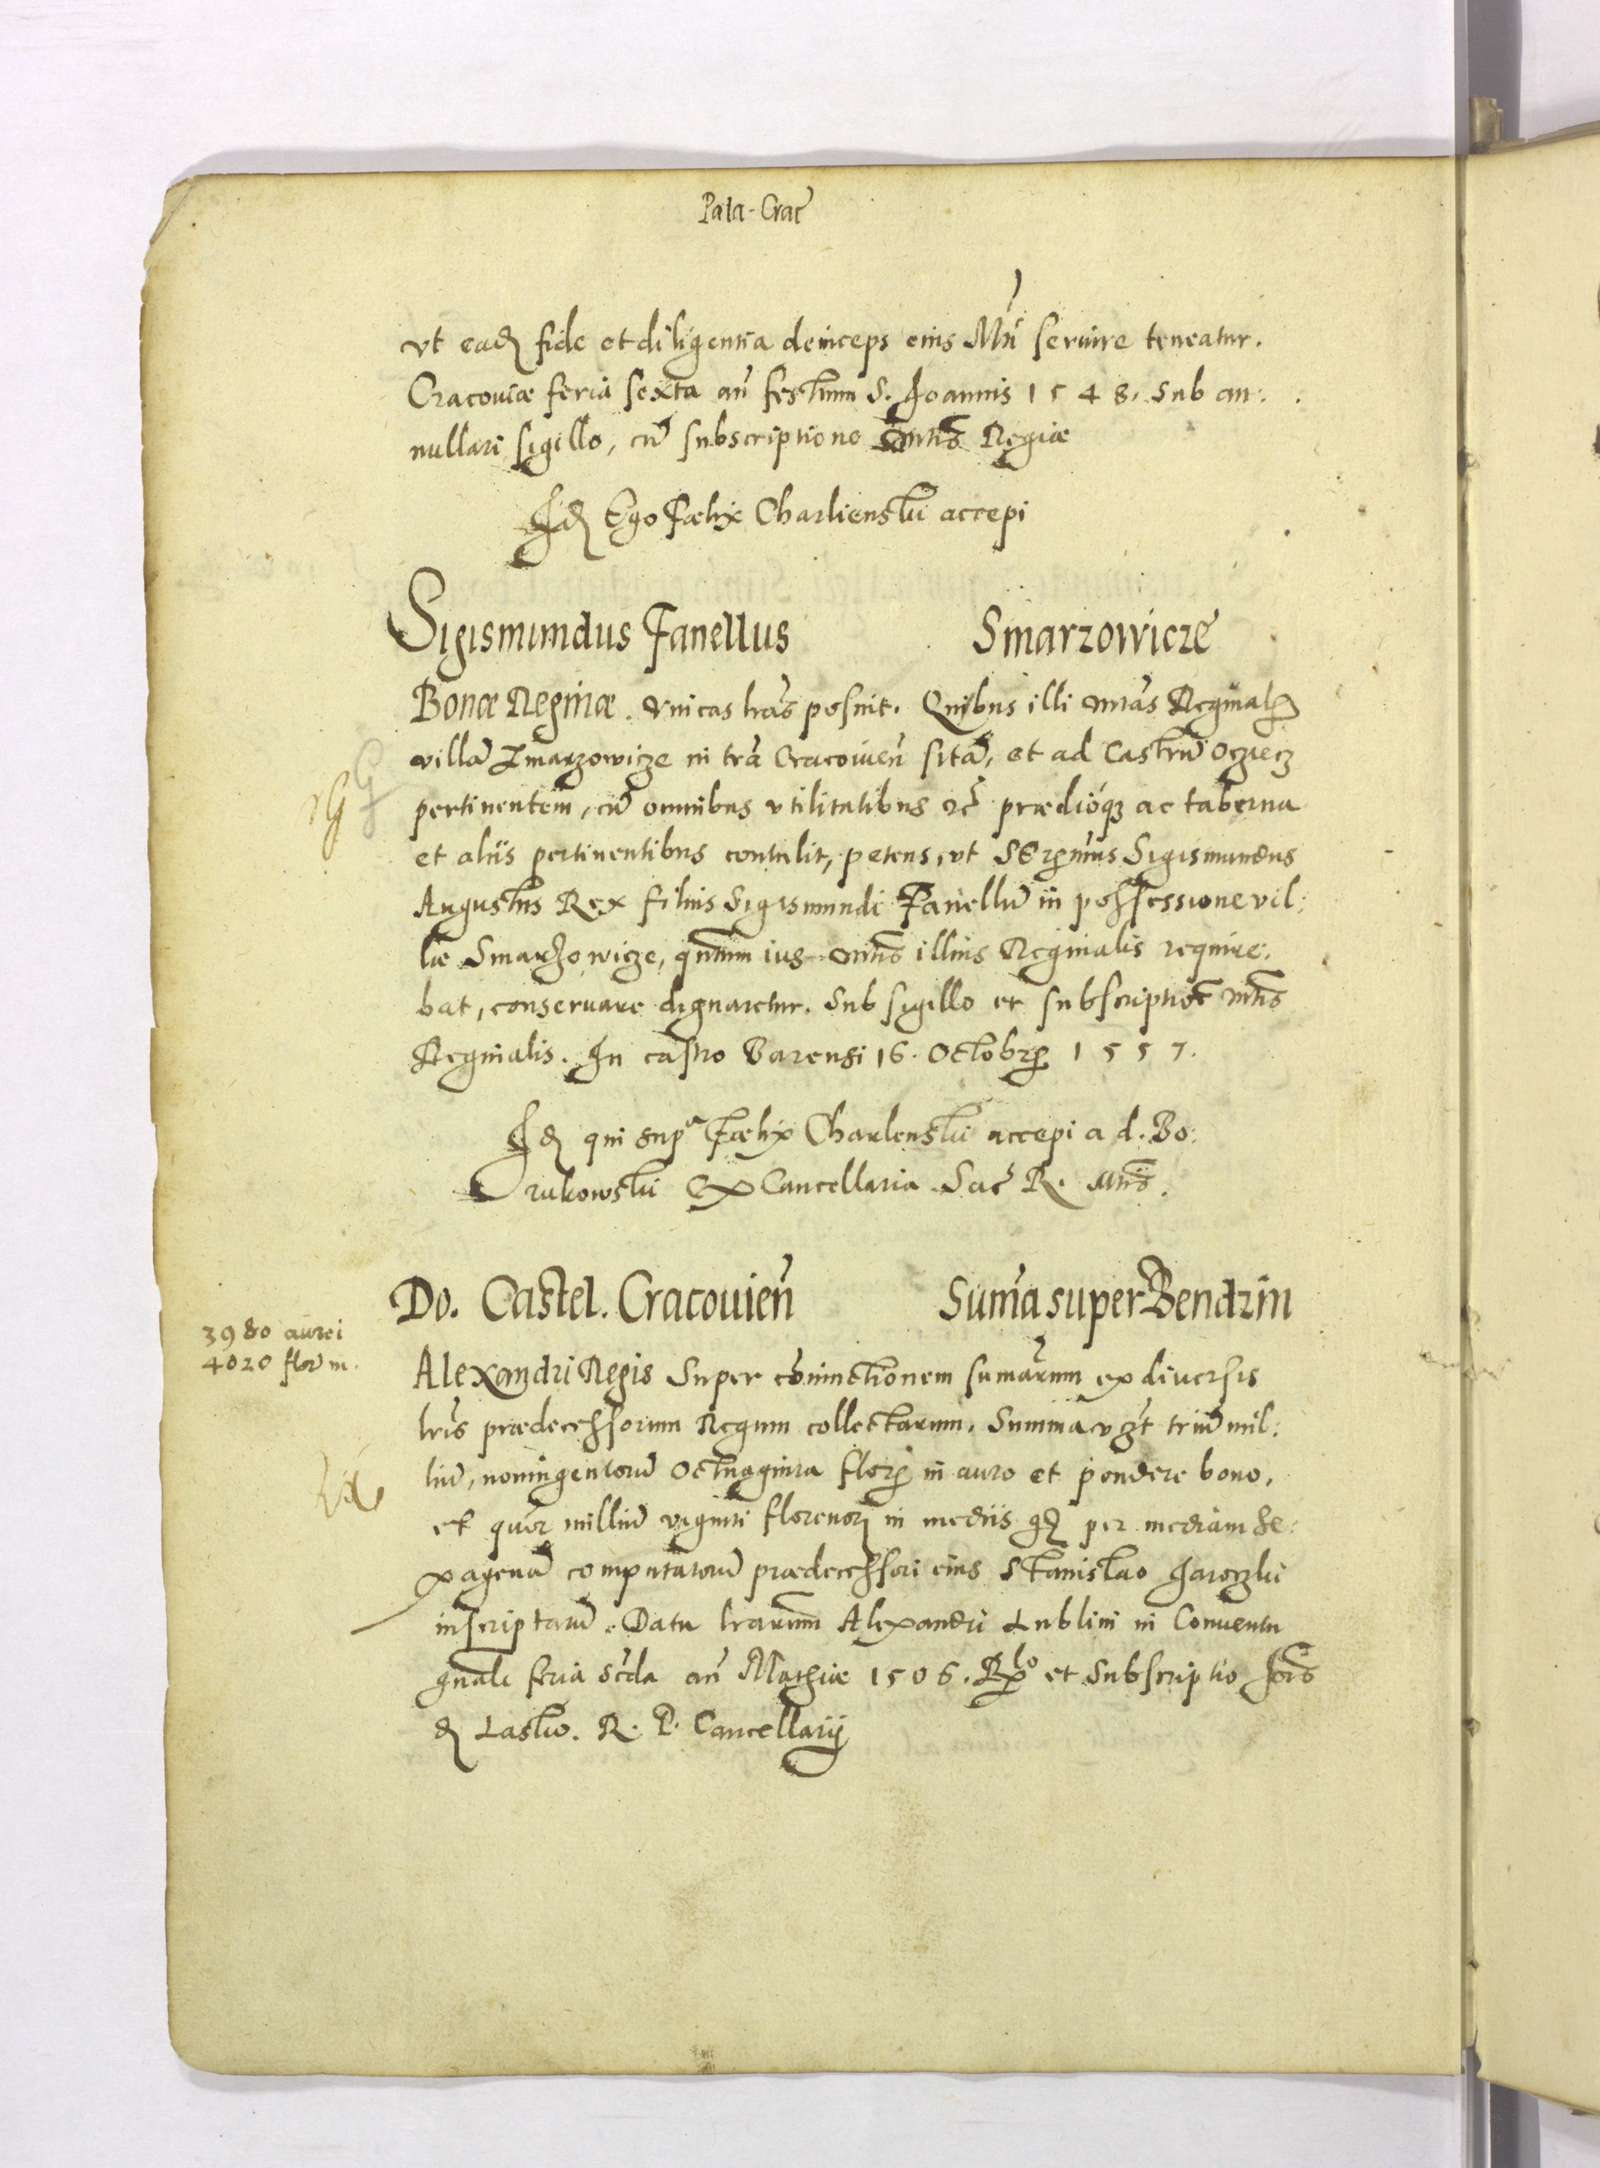 Pala-Crac̃
vt eadẽ fide et diligentia deinceps eius Mti seruire teneatur.
Cracoviæ feria sexta an̄ festum S. Joannis 1548. Sub an:
nullari sigillo, cū subscriptione Mtis Regiæ
Idẽ Ego Fælix Charlienski accepi
Sigismundus Fanellus Smarzowicze
Bonæ Reginæ. Vnicas lr̃as posuit. Quibus illi mtas Reginal
villā Zmarzowicze in trã Cracouien̄ sitā, et ad Castrū Oczecz
pertinentem, cū omnibus vtilitatibus &c prædióq3 ac taberna
et aliis pertinentibus contulit, petens, vt Sermus Sigismundus
Augustus Rex filius Sigismundi Fanellū in possessione vil:
læ Smarzowicze, quantum ius mtis illius Reginalis require:
bat, conseruare dignaretur. Sub sigillo et subscriptiõe mtis
Reginalis. In castro Barensi 16. Octobr 1557.
Idẽ qui supa Fælix Charlenski accepi a d. Bo:
rukowski Ex Cancellaria Sac̃ R. Mtis.
Do. Castel. Cracouien̄ Sum̃a super Bendzin
3980 aurei
4020 flor̃ m.
Alexandri Regis Super cõiunctionem sum̃arum ex diuersis
lr̃is prædecessorum Regum collectarum. Summa vz̃t triū mil:
liū, noningentorū octuaginta flor in auro et pondere bono,
et quor milliū viginti florenor in mediis gr per mediam se:
xagenā computatorū prædecessori eius Stanislao Jaroczki
inscriptarū. Datu lr̃arum Alexandri Lublini in Conuentu
gn̄ali feria sc̃da an̄ Mathiæ 1506. Rlo et Subscriptio Joãis
d Lasko. R. P. Cancellarij